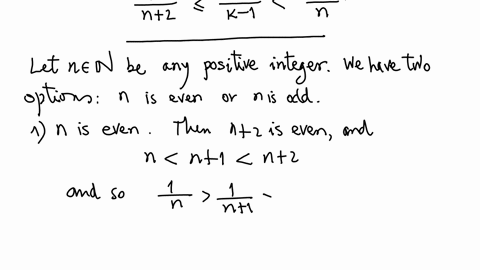 /n+2 ≤ /k-1 < /n
Let n∈ℕ be any positive integer. We have two
options: n is even or n is odd.
1) n is even. Then n+2 is even, and
n < n+1 < n+2
and so 1/n > 1/n+1 >